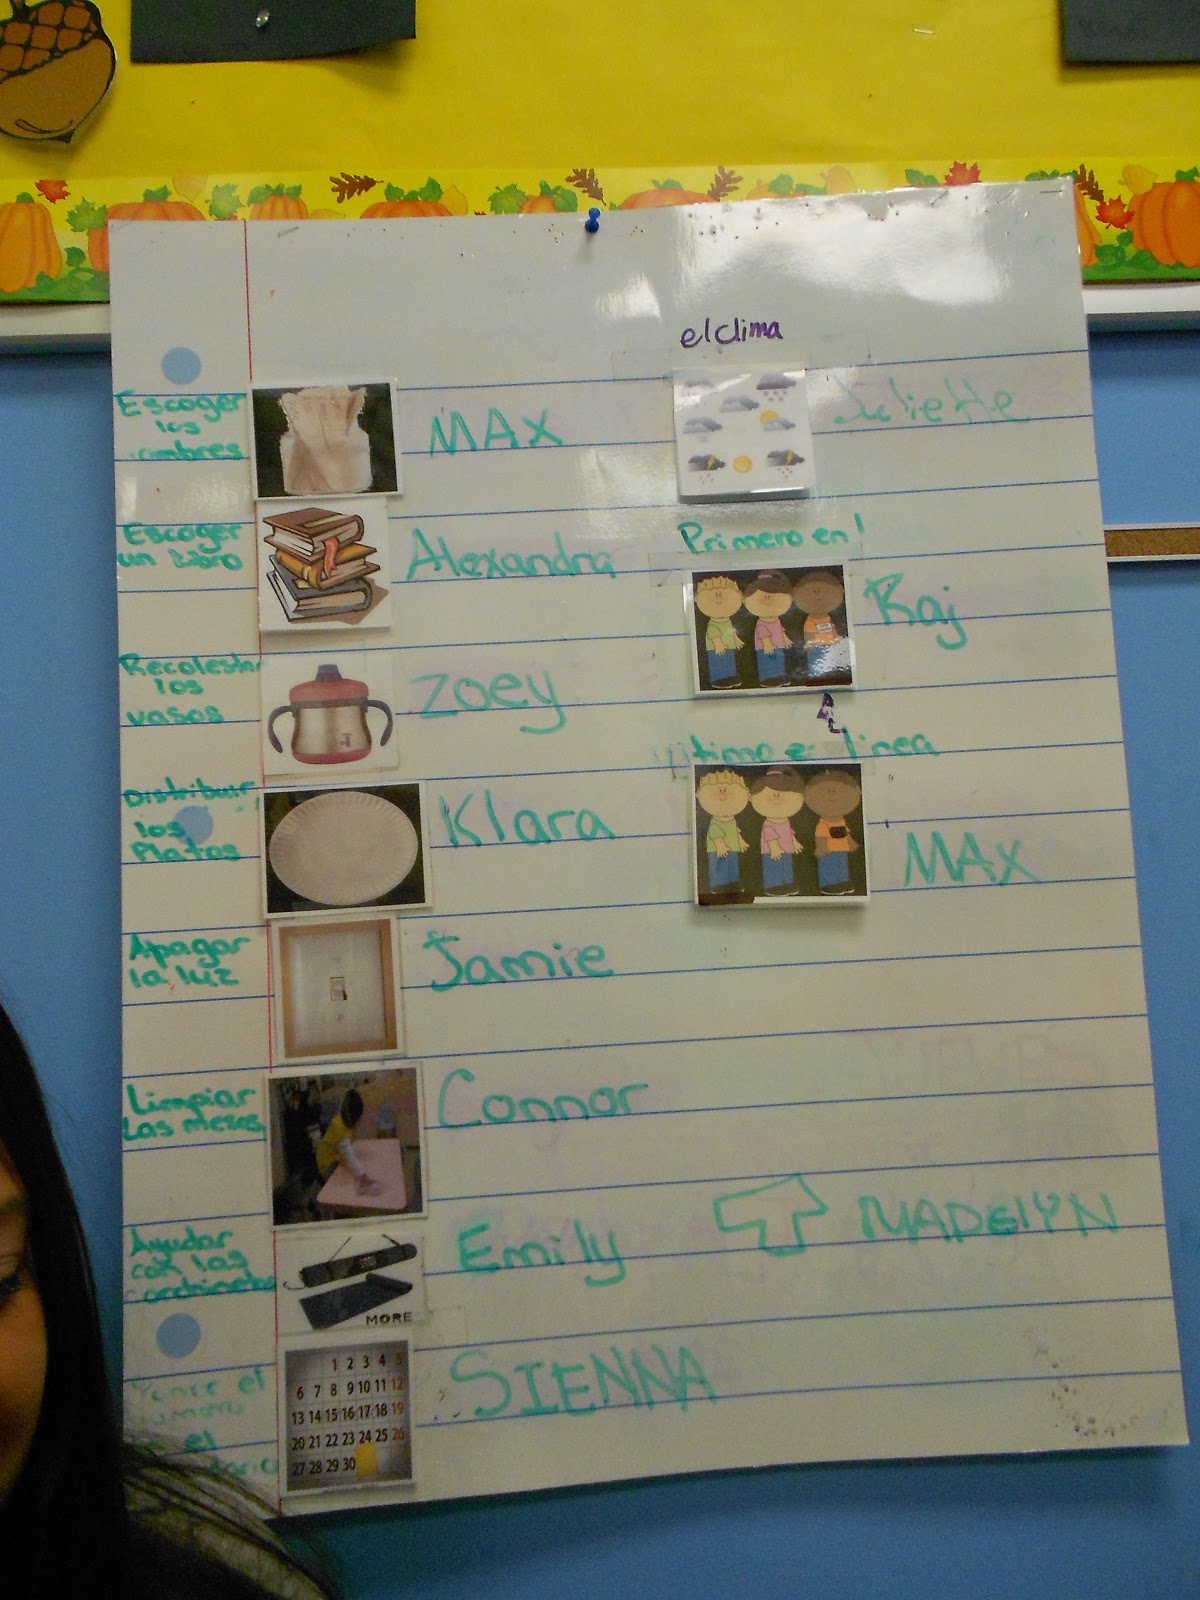 el clima
Escoger
los
nombres
MAX
Juliette
Escoger
un libro
Alexandra
Primero en
Raj
Recolestar
los
vasos
Zoey
ultimo en linea
MAX
Distribuir
los
Platos
Klara
Apagar
la luz
Jamie
Limpiar
Las mesas
Connor
Ayudar
con las
Emily
MADElYN
MORE
el
el
SIENNA
1 2 3 4 5
6 7 8 9 10 11 12
13 14 15 16 17 18 19
20 21 22 23 24 25 26
27 28 29 30